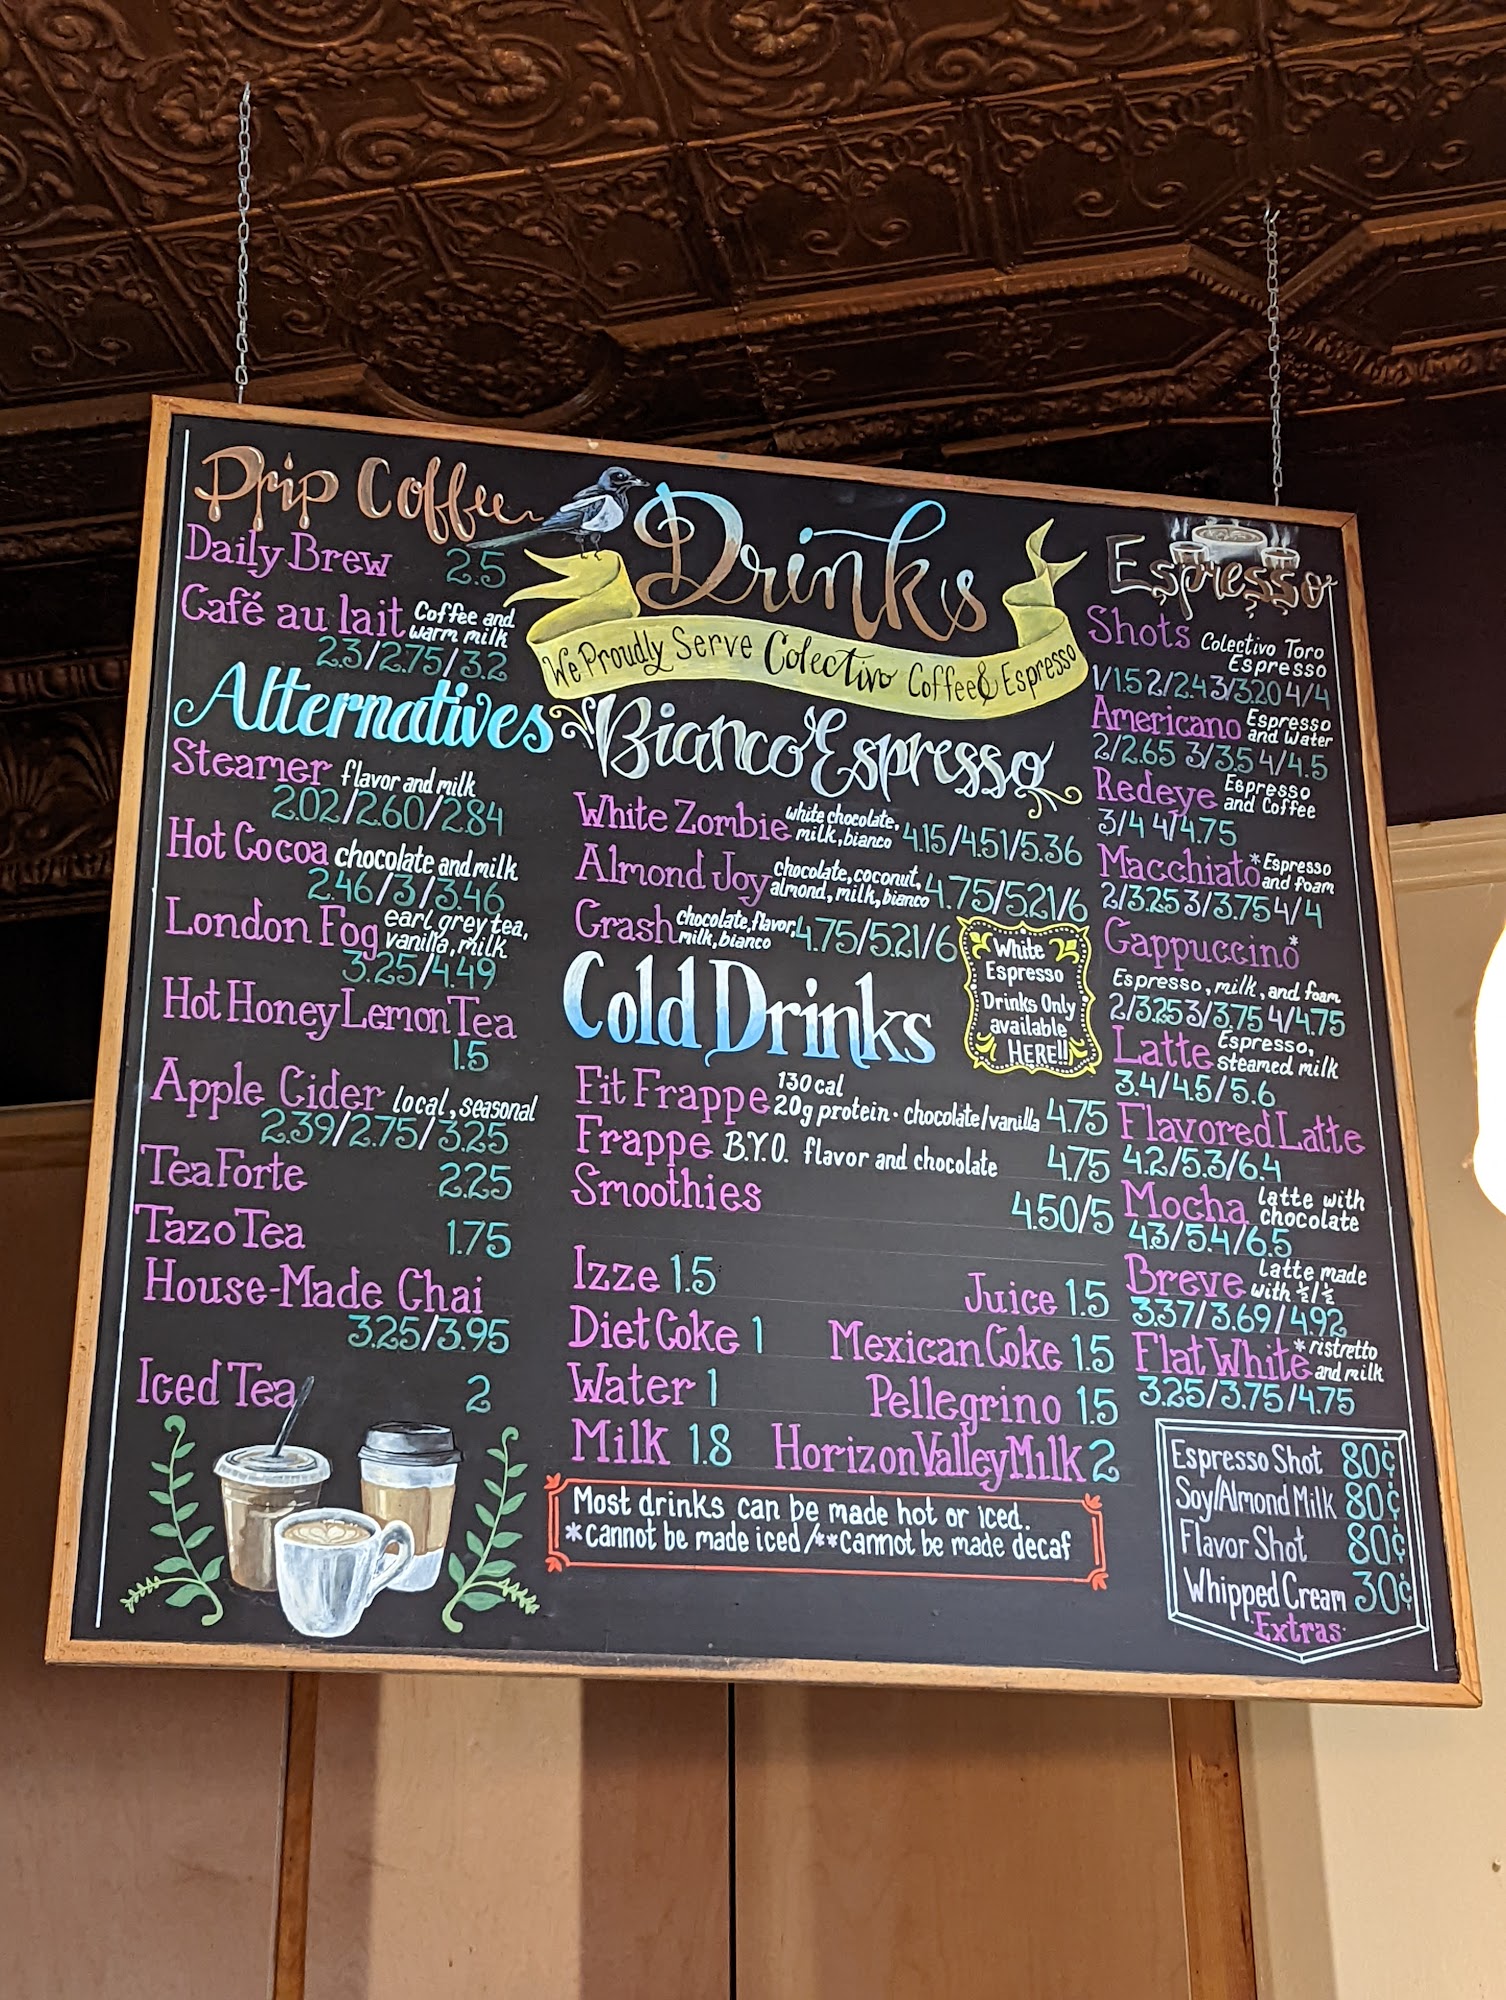 Drip Coffee
Daily Brew 2.5
Café au lait Coffee and
warm milk
2.3/2.75/3.2
Alternatives
Steamer flavor and milk
2.02/2.60/2.84
Hot Cocoa chocolate and milk
2.46/3/3.46
London Fog earl grey tea,
vanilla, milk
3.25/4.49
Hot Honey Lemon Tea
1.5
Apple Cider local, seasonal
2.39/2.75/3.25
Tea Forte 2.25
Tazo Tea 1.75
House-Made Chai
3.25/3.95
Iced Tea 2
Drinks
We Proudly Serve Colectivo Coffee & Espresso
Bianco Espresso
White Zombie white chocolate,
milk, bianco 4.15/4.51/5.36
Almond Joy chocolate, coconut,
almond, milk, bianco 4.75/5.21/6
Crash chocolate, flavor,
milk, bianco 4.75/5.21/6
White
Espresso
Drinks Only
available
HERE!!
Cold Drinks
Fit Frappe 130 cal
20g protein · chocolate/vanilla 4.75
Frappe B.Y.O. flavor and chocolate 4.75
Smoothies 4.50/5
Izze 1.5 Juice 1.5
Diet Coke 1 Mexican Coke 1.5
Water 1 Pellegrino 1.5
Milk 1.8 Horizon Valley Milk 2
Most drinks can be made hot or iced.
*cannot be made iced/**cannot be made decaf
Espresso
Shots Colectivo Toro
Espresso
1/1.5 2/2.4 3/3.20 4/4
Americano Espresso
and Water
2/2.65 3/3.5 4/4.5
Redeye Espresso
and Coffee
3/4 4/4.75
Macchiato* Espresso
and foam
2/3.25 3/3.75 4/4
Cappuccino*
Espresso, milk, and foam
2/3.25 3/3.75 4/4.75
Latte Espresso,
steamed milk
3.4/4.5/5.6
Flavored Latte
4.2/5.3/6.4
Mocha latte with
chocolate
4.3/5.4/6.5
Breve latte made
with ½/½
3.37/3.69/4.92
Flat White *ristretto
and milk
3.25/3.75/4.75
Espresso Shot 80¢
Soy/Almond Milk 80¢
Flavor Shot 80¢
Whipped Cream 30¢
Extras